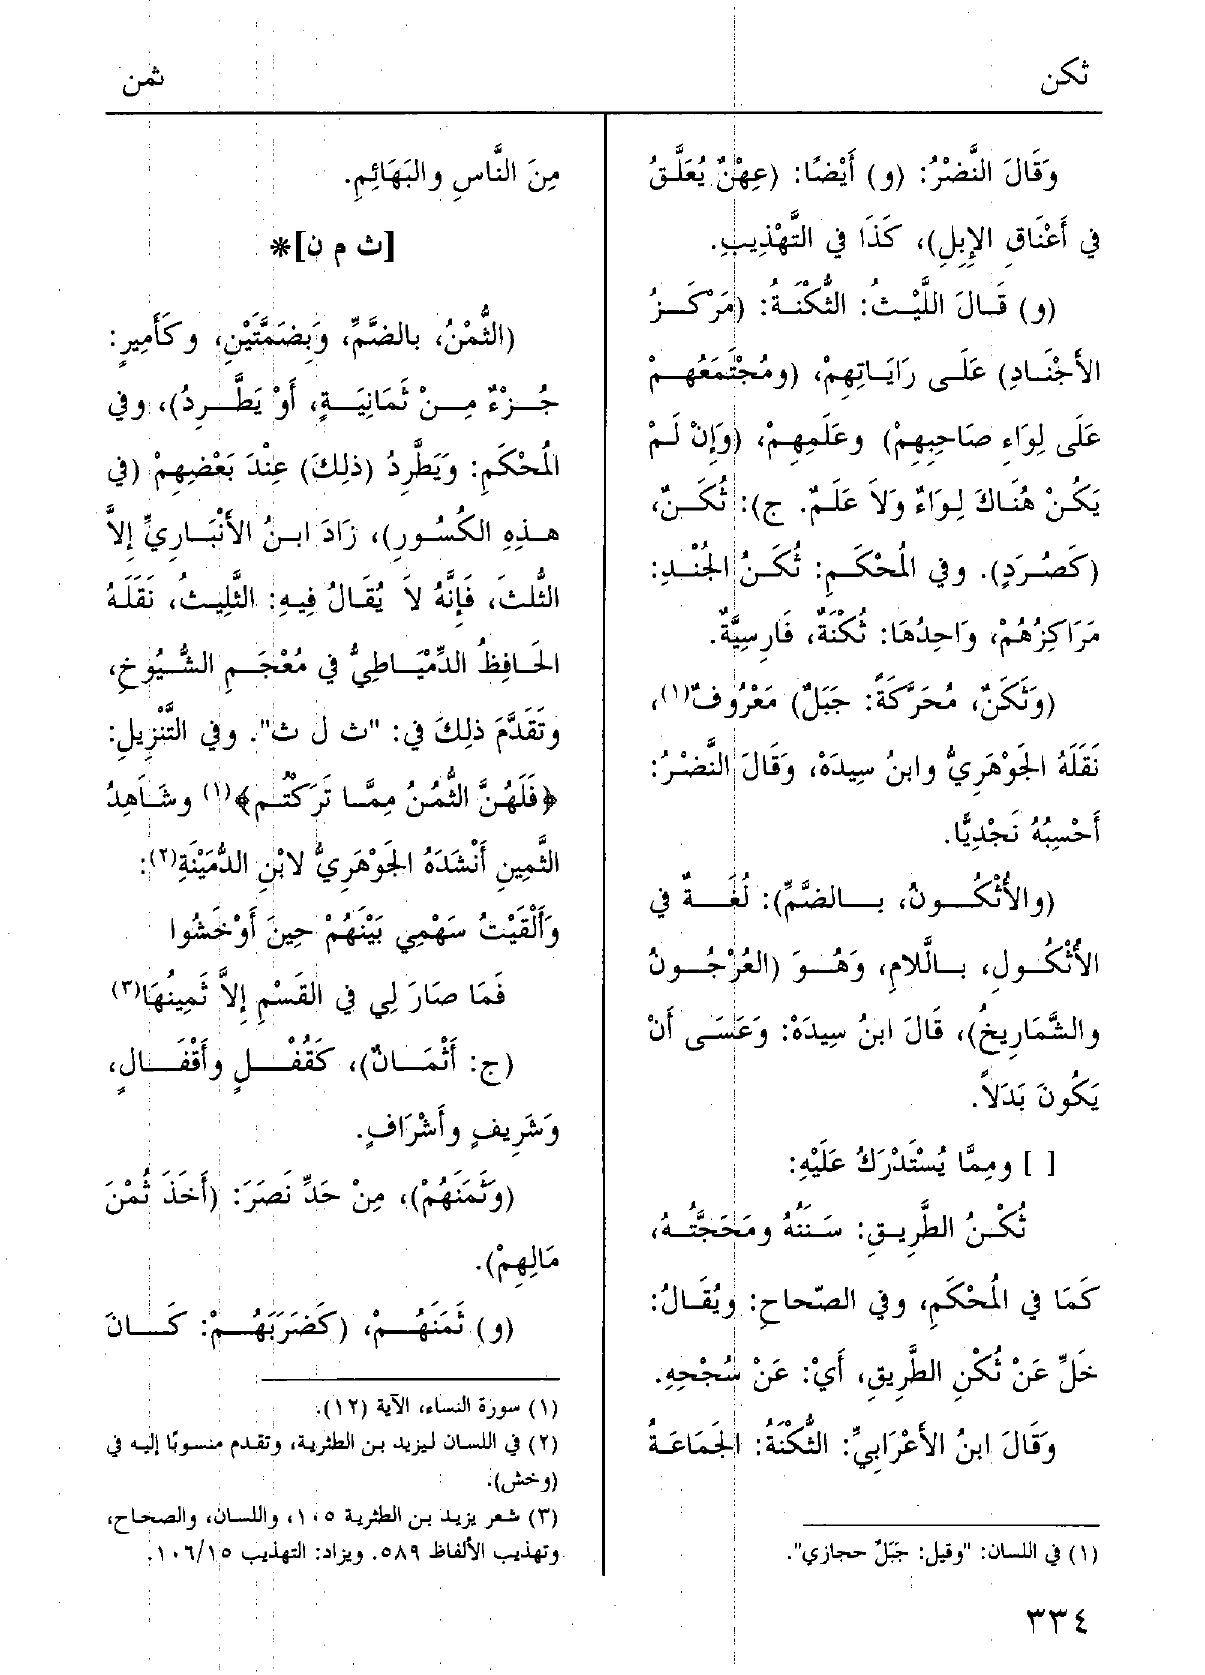 ثكن
ثمن
وَقَالَ النَّضْرُ: (و) أَيْضًا: (عِهْنٌ يُعَلَّقُ
في أَعْنَاقِ الإِبِلِ)، كَذَا في التَّهْذِيبِ.
(و) قَالَ اللَّيْثُ: الثُّكْنَةُ: (مَرْكَزُ
الأَجْنَادِ) عَلَى رَايَاتِهِمْ، (ومُجْتَمَعُهم
عَلَى لِوَاءِ صَاحِبِهِمْ) وعَلَمِهِمْ، (وَإِنْ لَمْ
يَكُنْ هُنَاكَ لِوَاءٌ وَلاَ عَلَمٌ. ج): ثُكَنٌ،
(كَصُرَدٍ). وفي الْمُحْكَمِ: ثُكَنُ الْجُنْدِ:
مَرَاكِزُهُمْ، وَاحِدُهَا: ثُكْنَةٌ، فَارِسِيَّةٌ.
(وَثَكَنٌ، مُحَرَّكَةً: جَبَلٌ) مَعْرُوفٌ(١)،
نَقَلَهُ الْجَوْهَرِيُّ وابنُ سِيدَهْ، وَقَالَ النَّضْرُ:
أَحْسِبُهُ نَجْدِيًّا.
(والأُثْكُونُ، بالضَّمِّ): لُغَةٌ في
الأُثْكُولِ، باللَّامِ، وَهُوَ (العُرْجُونُ
والشَّمَارِيخُ)، قَالَ ابنُ سِيدَهْ: وَعَسَى أَنْ
يَكُونَ بَدَلاً.
[ ] ومِمَّا يُسْتَدْرَكُ عَلَيْهِ:
ثُكْنُ الطَّرِيقِ: سَنَنُهُ ومَحَجَّتُهُ،
كَمَا في الْمُحْكَمِ، وفي الصِّحاحِ: ويُقَالُ:
خَلِّ عَنْ ثُكْنِ الطَّرِيقِ، أَيْ: عَنْ سُجْحِهِ.
وَقَالَ ابنُ الأَعْرَابِيِّ: الثُّكْنَةُ: الْجَمَاعَةُ
(١) في اللسان: "وقيل: جَبَلٌ حجازي".
٣٣٤
مِنَ النَّاسِ والبَهَائِمِ.
[ث م ن]*
(الثُّمْنُ، بالضَّمِّ، وَبِضَمَّتَيْنِ، وكَأَمِيرٍ:
جُزْءٌ مِنْ ثَمَانِيَةٍ، أَوْ يَطَّرِدُ)، وفي
الْمُحْكَمِ: وَيَطَّرِدُ (ذلِكَ) عِنْدَ بَعْضِهِمْ (في
هذِهِ الكُسُورِ)، زَادَ ابنُ الأَنْبَارِيِّ إِلاَّ
الثُّلثَ، فَإِنَّهُ لاَ يُقَالُ فِيهِ: الثَّلِيثُ، نَقَلَهُ
الْحَافِظُ الدِّمْيَاطِيُّ في مُعْجَمِ الشُّيُوخِ،
وتَقَدَّمَ ذلِكَ في: "ث ل ث". وفي التَّنْزِيلِ:
﴿فَلَهُنَّ الثُّمُنُ مِمَّا تَرَكْتُم﴾(١) وشَاهِدُ
الثَّمِينِ أَنْشَدَهُ الْجَوْهَرِيُّ لابْنِ الدُّمَيْنَةِ(٢):
وَأَلْقَيْتُ سَهْمِي بَيْنَهُمْ حِينَ أَوْخَشُوا
فَمَا صَارَ لِي في القَسْمِ إِلاَّ ثَمِينُهَا(٣)
(ج: أَثْمَانٌ)، كَقُفْلٍ وأَقْفَالٍ،
وَشَرِيفٍ وأَشْرَافٍ.
(وثَمَنَهُمْ)، مِنْ حَدِّ نَصَرَ: (أَخَذَ ثُمْنَ
مَالِهِمْ).
(و) ثَمَنَهُمْ، (كَضَرَبَهُمْ: كَانَ
(١) سورة النساء، الآية (١٢).
(٢) في اللسان ليزيد بن الطثرية، وتقدم منسوبًا إليه في
(وخش).
(٣) شعر يزيد بن الطثرية ١٠٥، واللسان، والصحاح،
وتهذيب الألفاظ ٥٨٩. ويزاد: التهذيب ١٠٦/١٥.